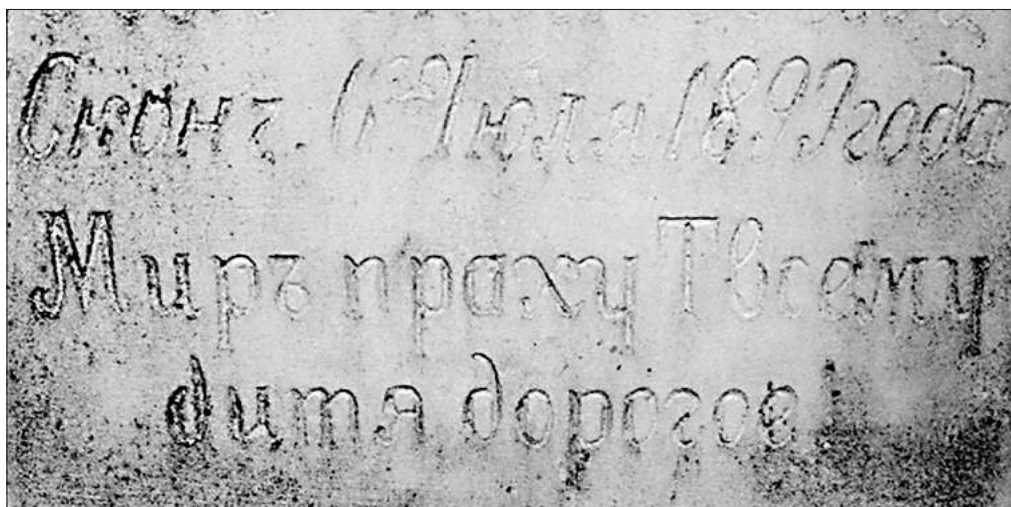 Сконч. Июля года
Миръ праху Твоему
дитя дорогое